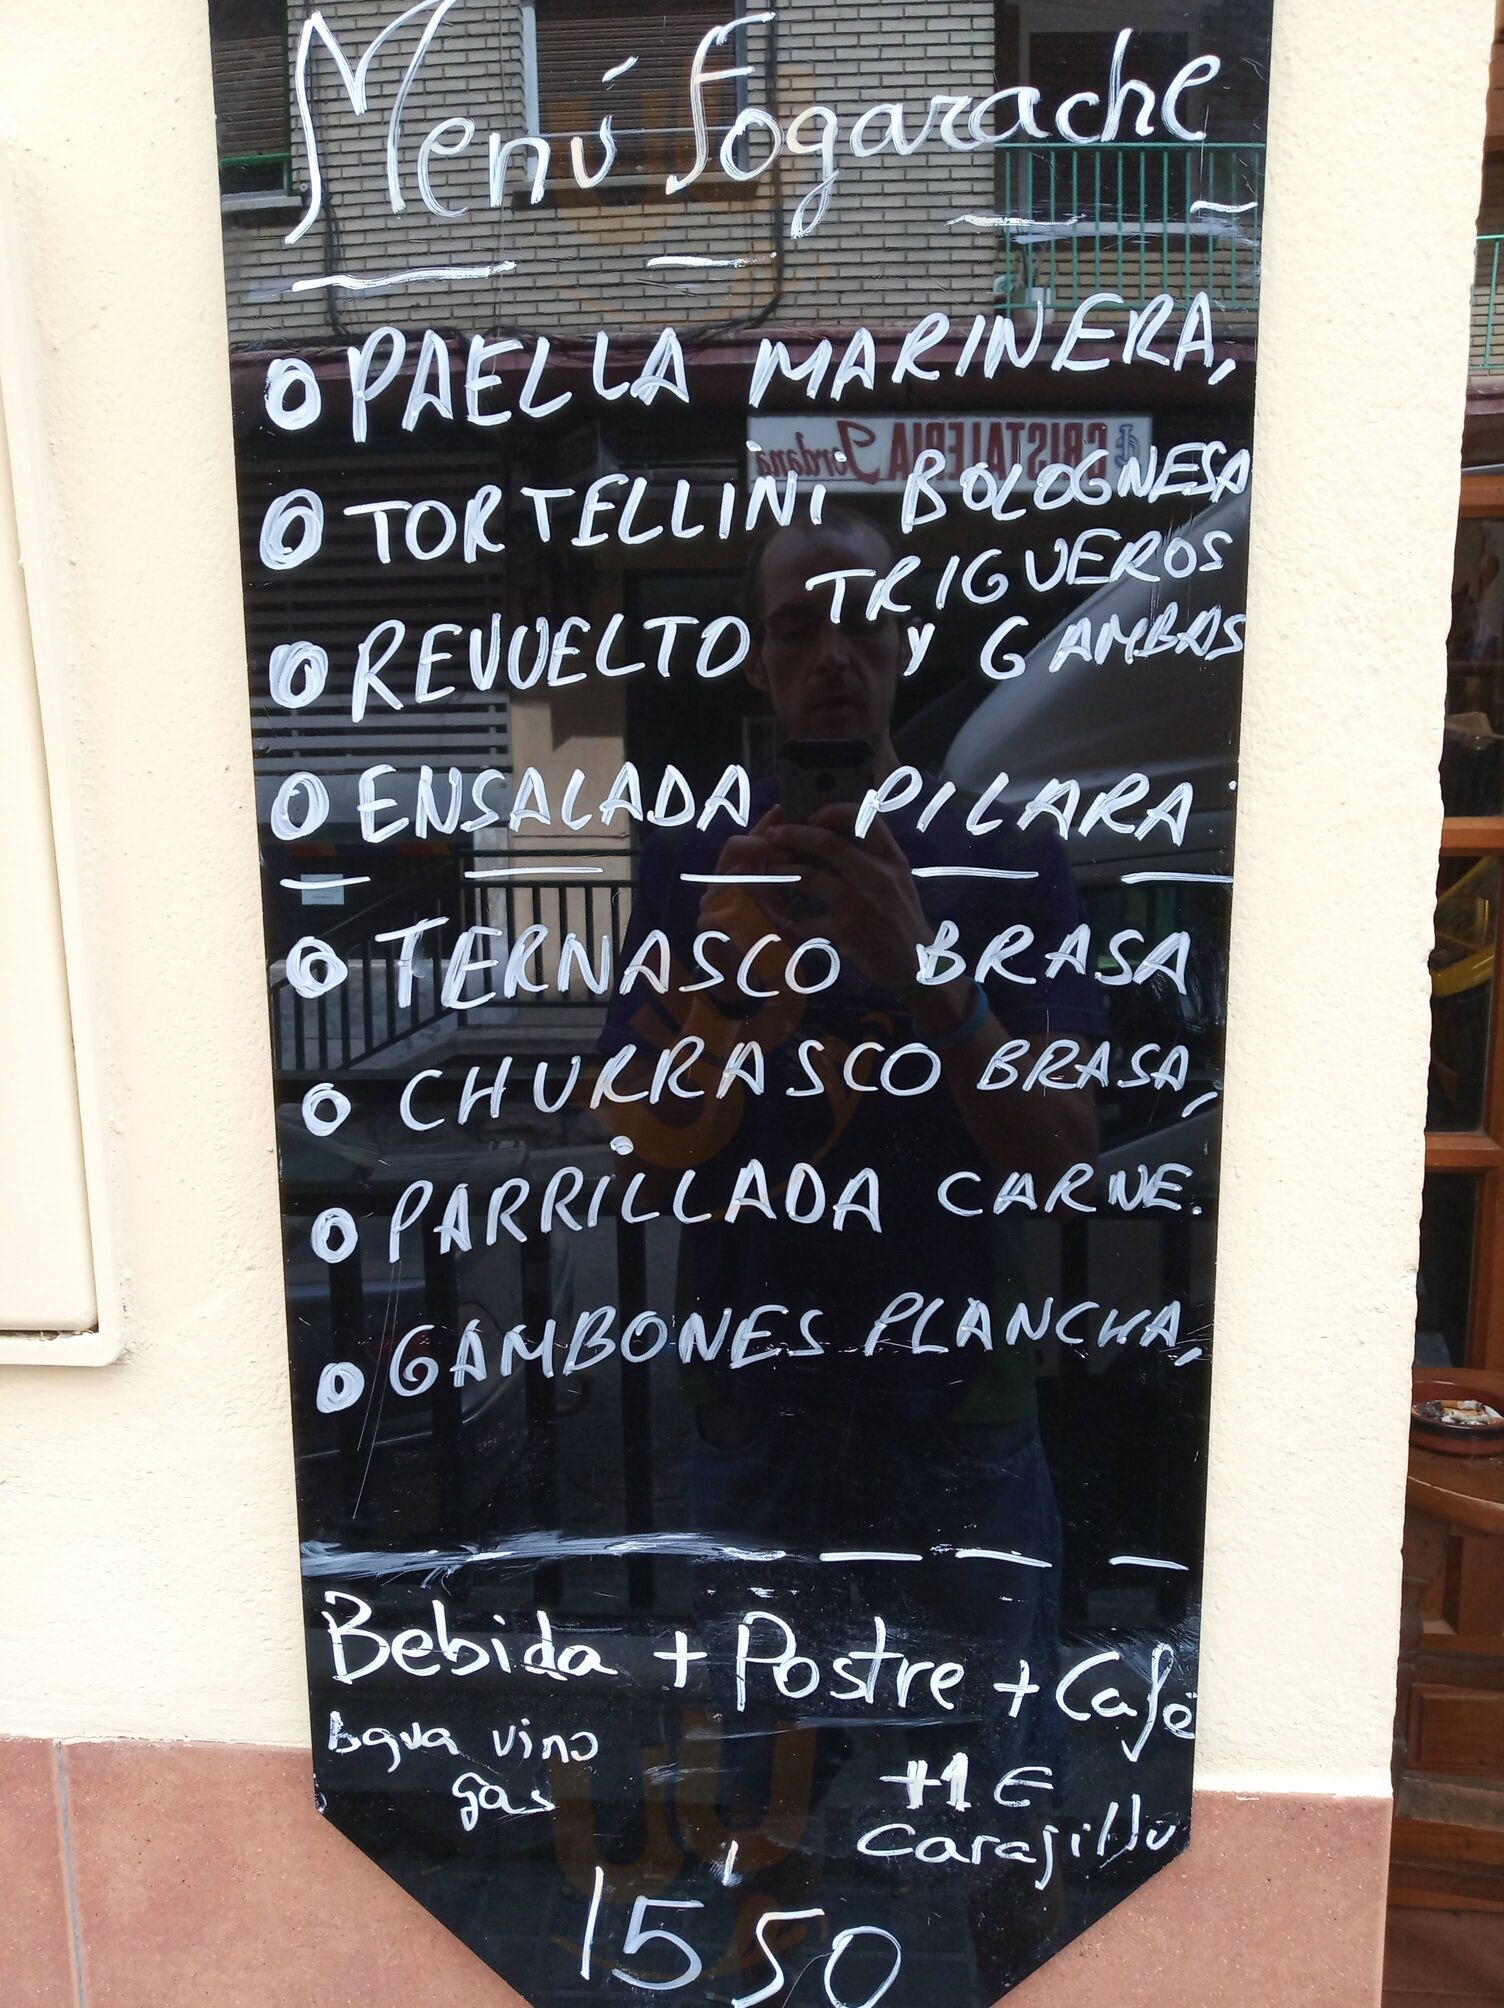 Menú fogarache
PAELLA MARINERA,
CRISTALERIA Jordana
TORTELLINI BOLOGNESA
REVUELTO TRIGUEROS
Y GAMBAS
ENSALADA PILARA
TERNASCO BRASA
CHURRASCO BRASA,
PARRILLADA CARNE.
GAMBONES PLANCHA,
Bebida + Postre + Café
Agua vino
gas
+1€
Carajillo
15'50